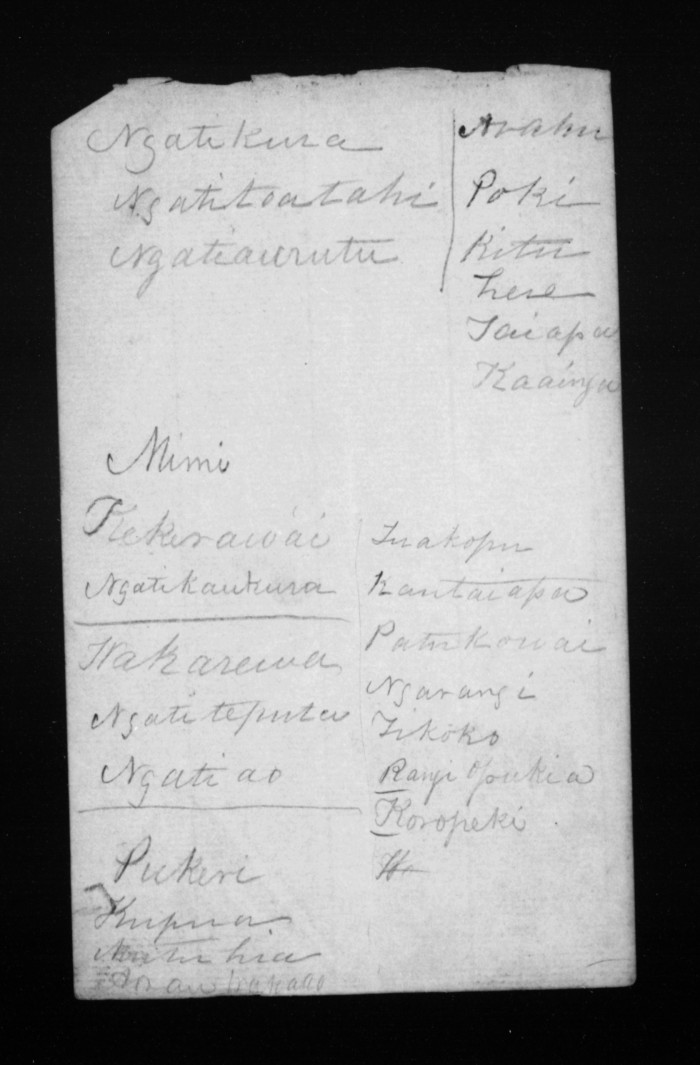 Ngatikura
Ngatitoatahi
Ngatiaurutu
Arahu
Poki
Kitu
here
Taiapa
Kaainga
Mimi
Kekerawai
Ngatikaukura
Wakarewa
Ngatiteputa
Ngatiao
Tuakopu
Kautaiapa
Patukouai
Ngarangi
Tikoko
Rangi Opukia
Koropeki
Pukeri
Kupua